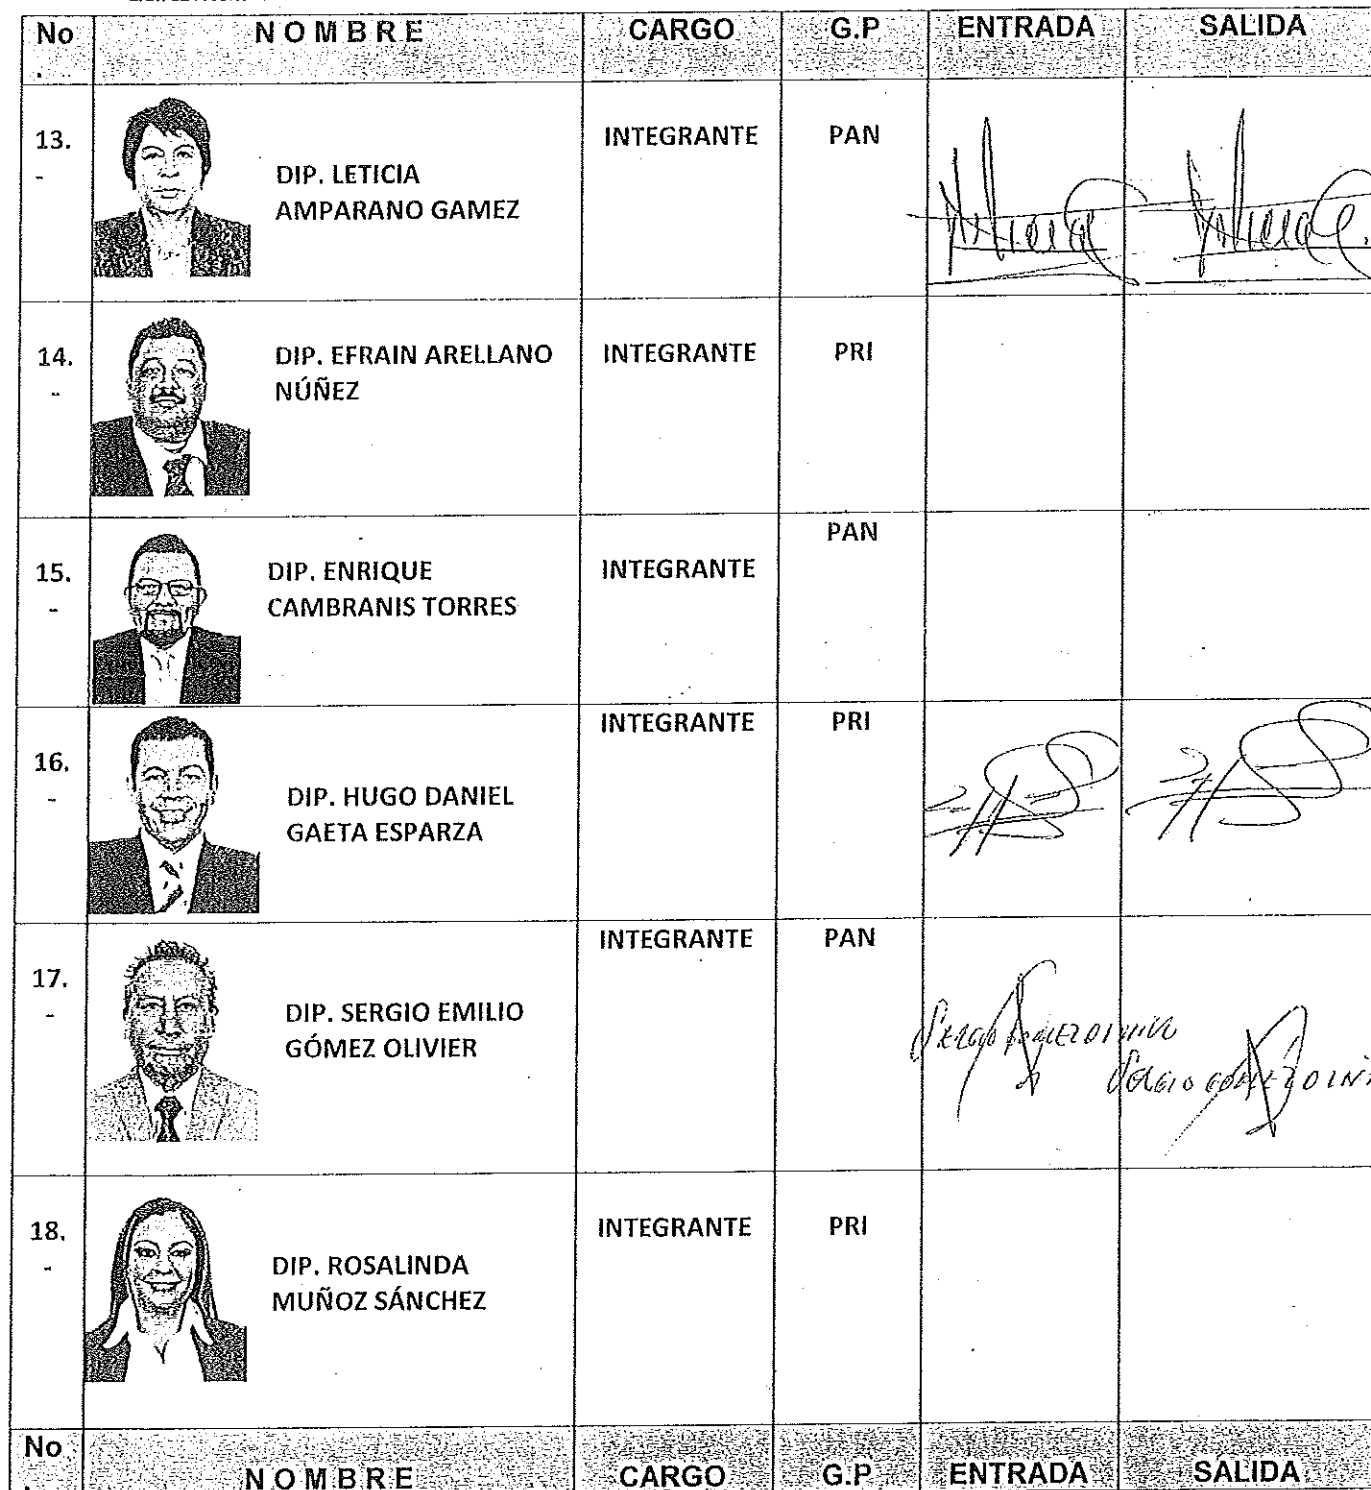 No
.
NOMBRE
CARGO
G.P
ENTRADA
SALIDA
13.
-
DIP. LETICIA
AMPARANO GAMEZ
INTEGRANTE
PAN
14.
-
DIP. EFRAIN ARELLANO
NÚÑEZ
INTEGRANTE
PRI
15.
-
DIP. ENRIQUE
CAMBRANIS TORRES
INTEGRANTE
PAN
16.
-
DIP. HUGO DANIEL
GAETA ESPARZA
INTEGRANTE
PRI
17.
-
DIP. SERGIO EMILIO
GÓMEZ OLIVIER
INTEGRANTE
PAN
18.
-
DIP. ROSALINDA
MUÑOZ SÁNCHEZ
INTEGRANTE
PRI
No
.
NOMBRE
CARGO
G.P
ENTRADA
SALIDA